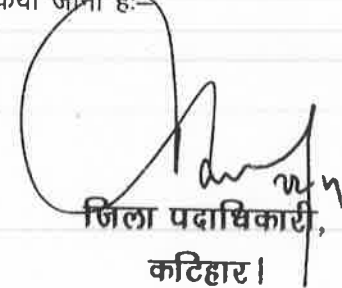 किया जाना है:–
जिला पदाधिकारी,
कटिहार।